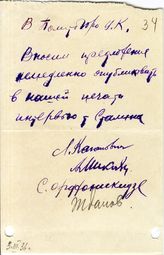 В Политбюро Ц.К. 34
Вносим предложение
немедленно опубликовать
в нашей печати
интервью т Сталина
Л. Каганович
А. Микоян
С. Орджоникидзе
Жданов.